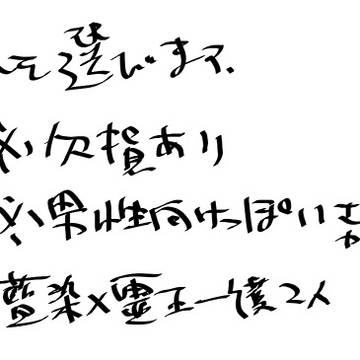 して選びます。
※欠損あり
※男性向けっぽいさ
藍染×霊王一護2人